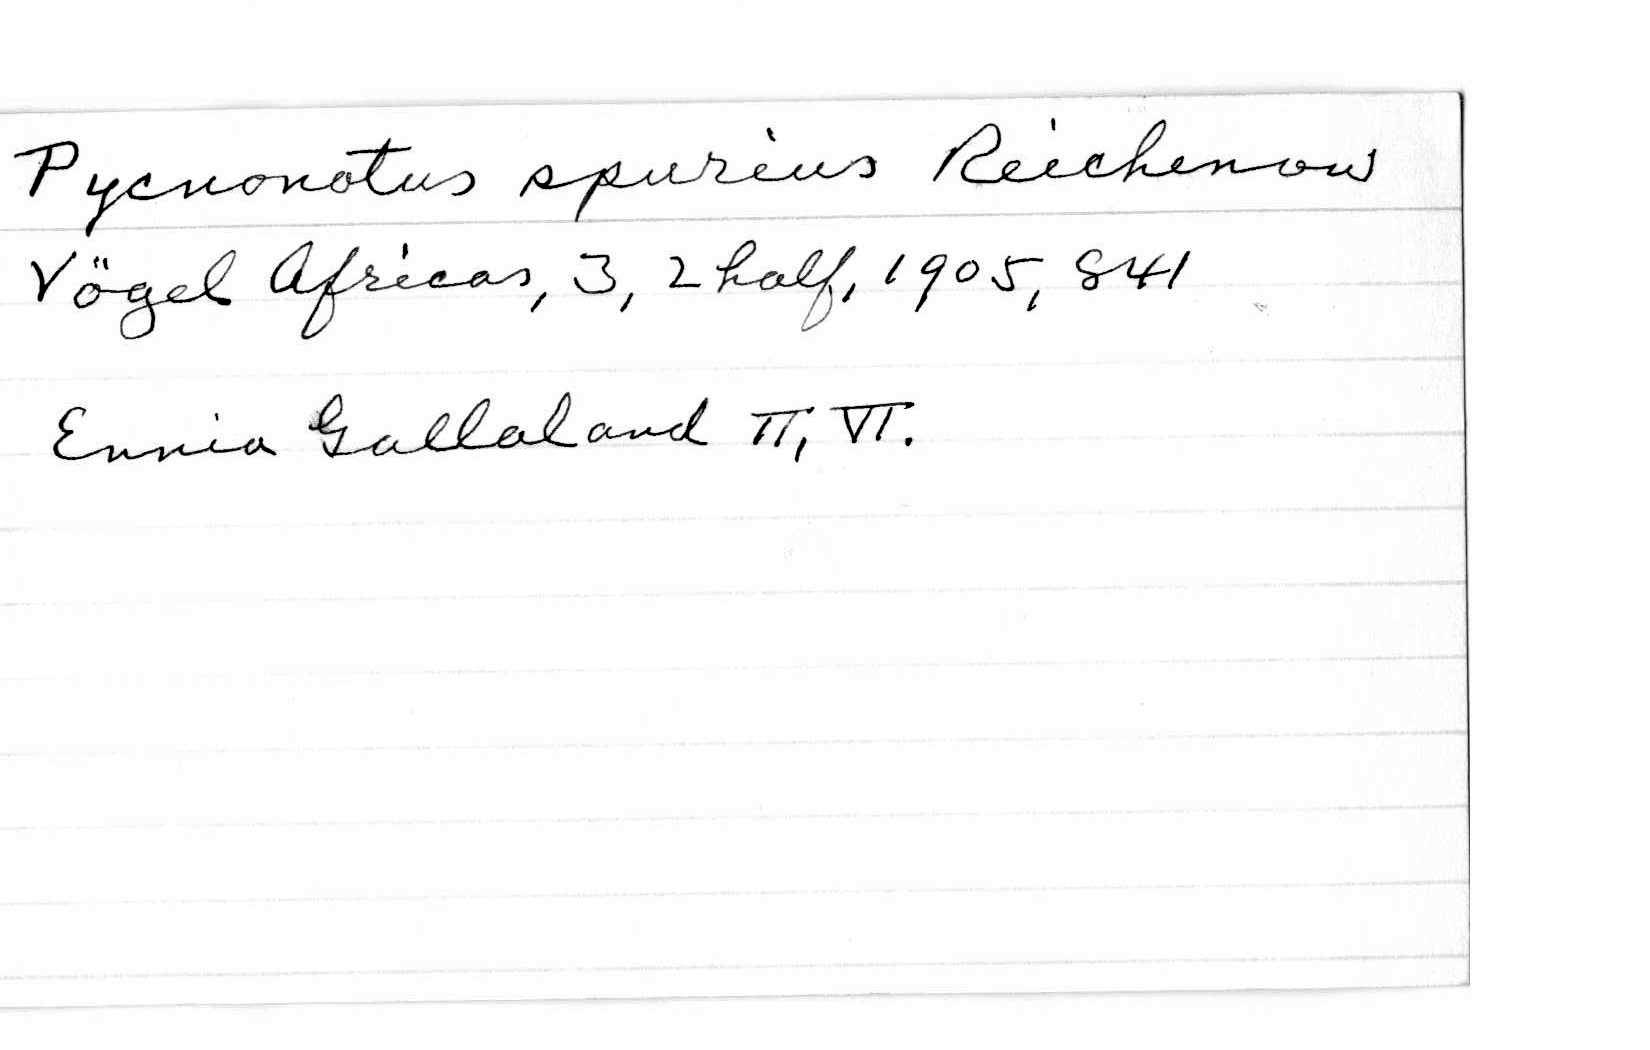 Pycnonotus spurius Reichenow
Vögel Africas, 3, 2 half, 1905, 841
Ennia Gallaland II, VI.